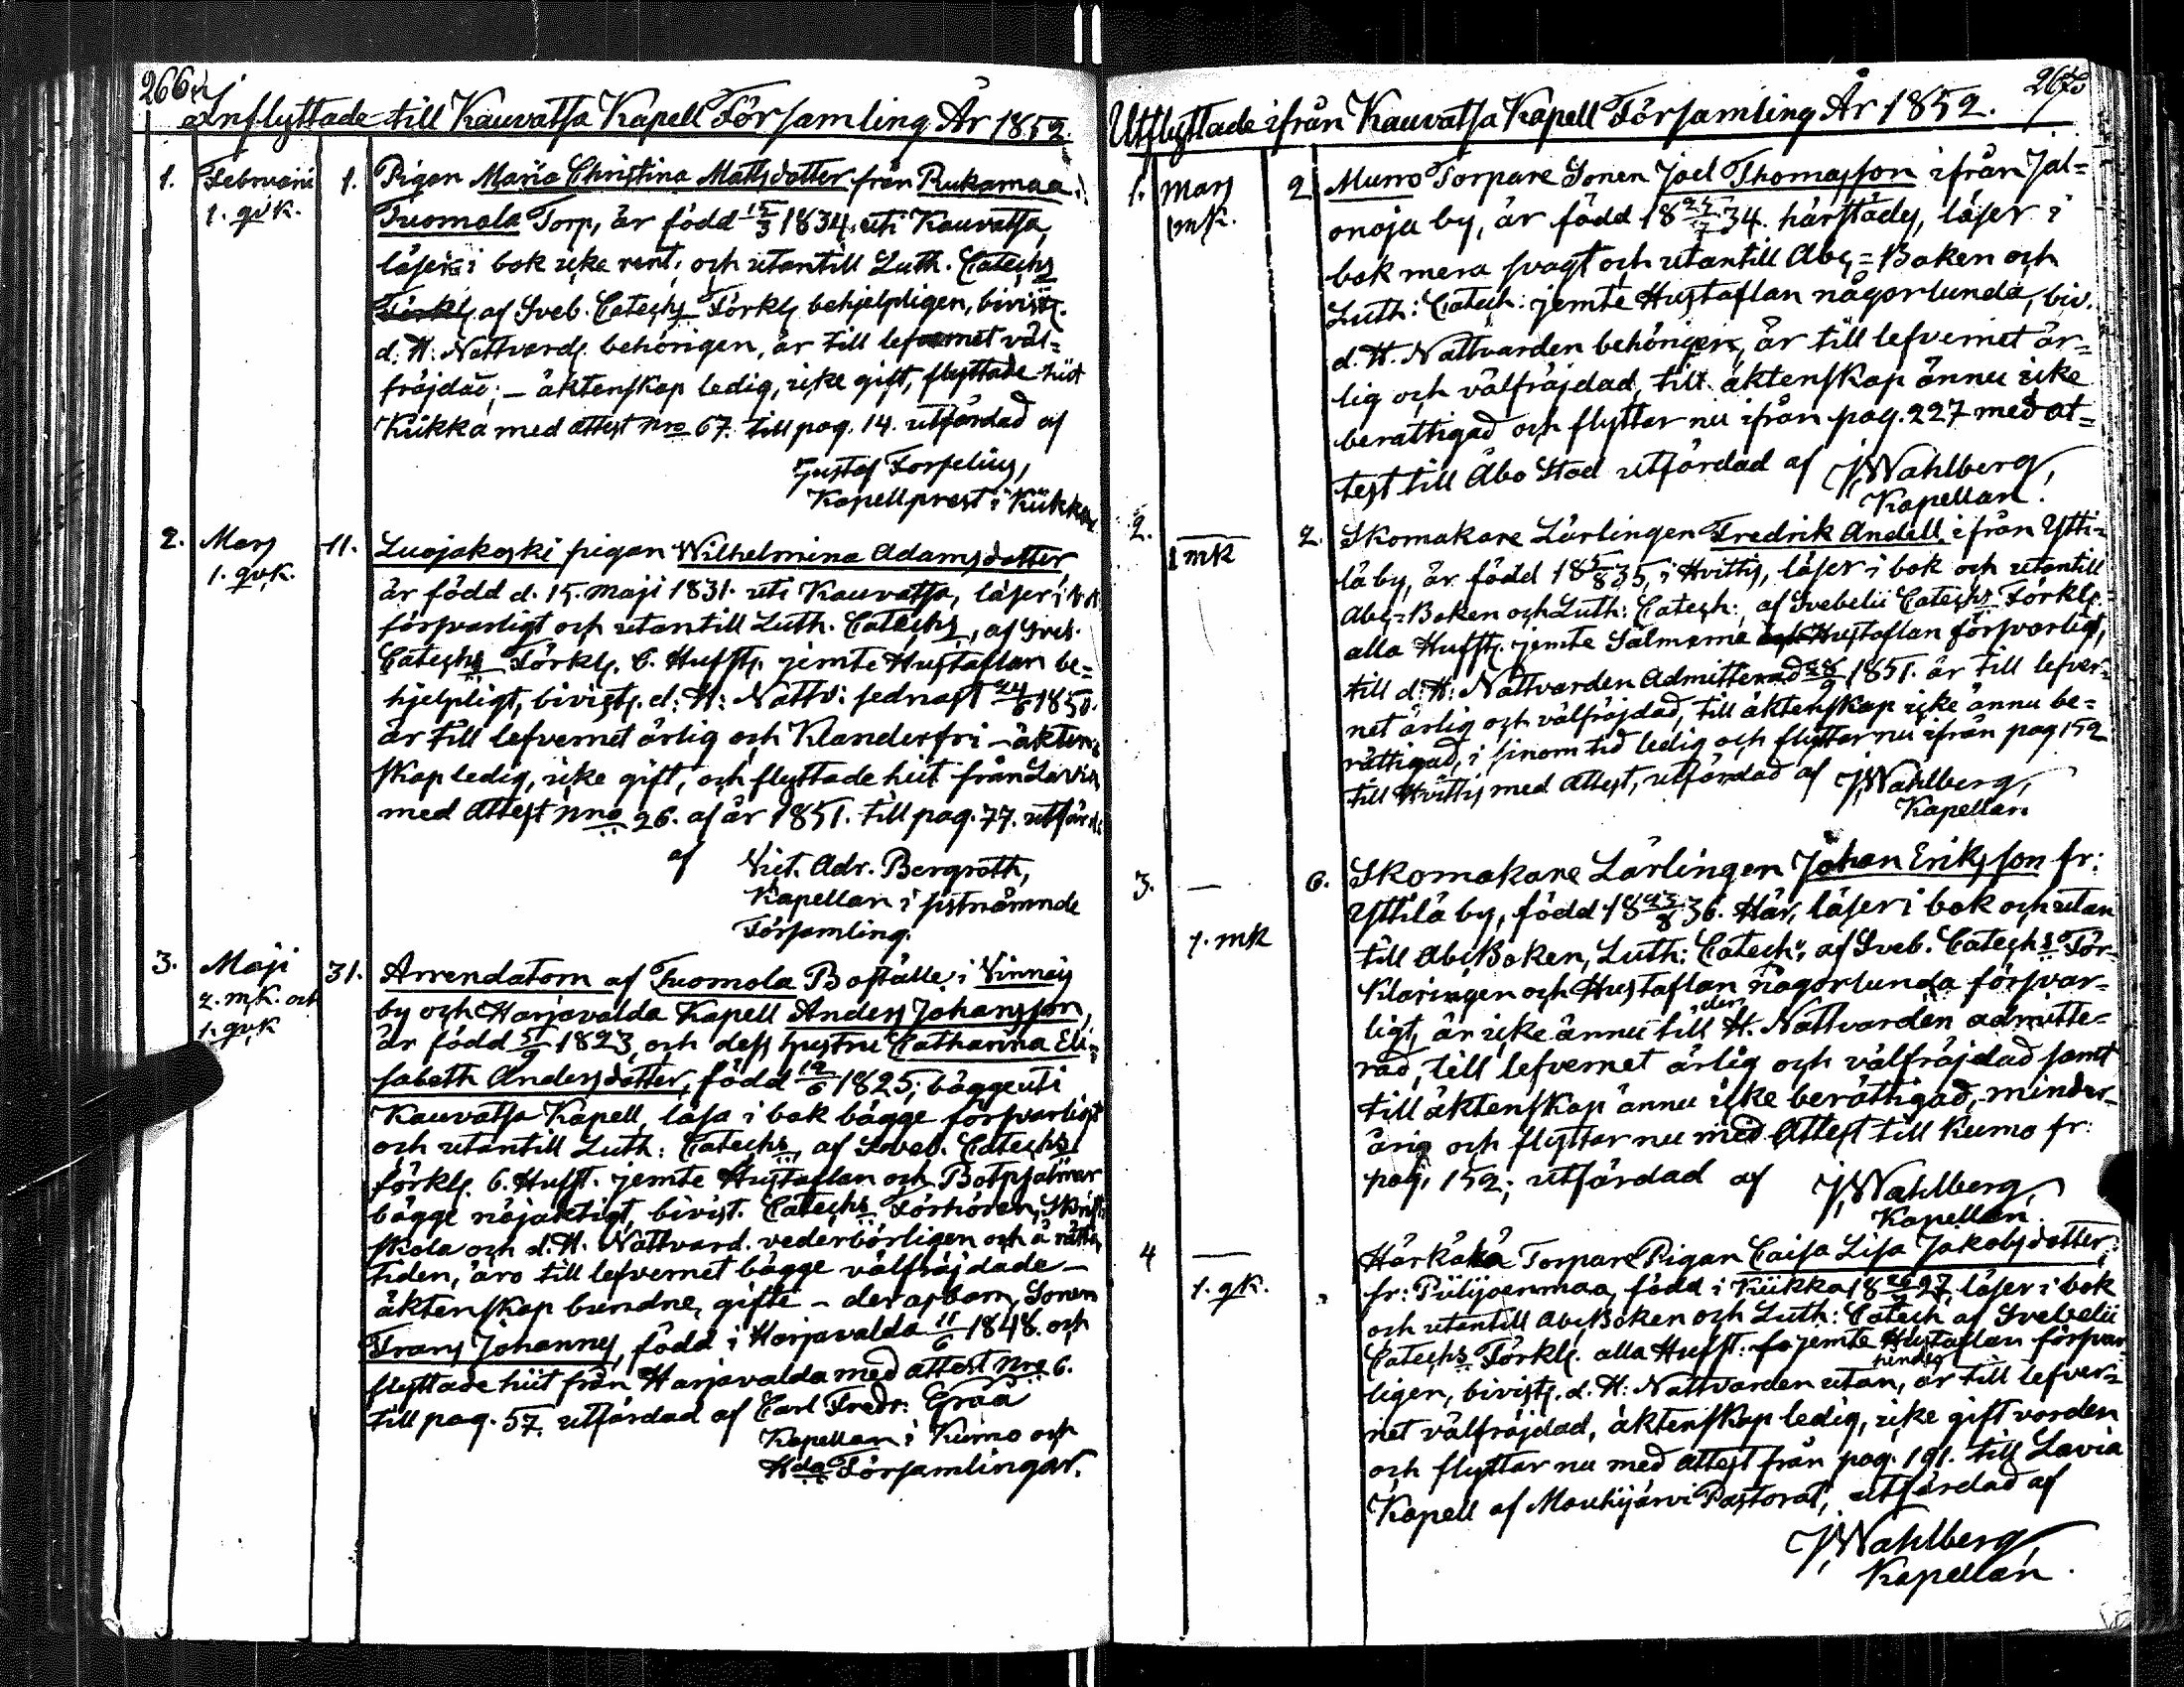 266
Inflyttade till Kauvatsa Kapell Församling År 1852.
1. Februari 1. Pigan Maria Christina Mattsdotter från Rukamaa
1. qvk. Tuomola Torp, är född 15/3 1834. uti Kauvatsa,
läser i bok icke rent, och utantill Luth. Catechs
Förkls af Sveb. Catechs Förkls behjelpligen, bivist.
d. H. Nattvards. behörigen, är till lefvernet väl-
fräjdad; – äktenskap ledig, icke gift, flyttade hiit
Kiikka med attest Nro 67. till pag. 14. utfärdad af
Gustaf Forselius,
Kapellprest i Kiikka
2. Mars 11. Luojakoski pigan Wilhelmina Adamsdotter
1. qvk. är född d. 15. Maji 1831. uti Kauvatsa, läser i bok
försvarligt och utantill Luth. Catechs, af Sveb.
Catechs Förkls. 6. Hufsts. jemte Hustaflan be-
hjelpligt, bivists. d. H. Nattv: sednast 24/6 1850.
är till lefvernet ärlig och Klanderfri – äkten-
skap ledig, icke gift, och flyttade hiit från Lavia
med Attest Nro 26. af år 1851. till pag. 77. utfärd:
af Vict. Adr. Bergroth,
Kapellan i sistnämnde
Församling.
3. Maji 31. Arrendatorn af Tuomola Boställe i Vinnäs
2. mk. och by och Harjavalda Kapell Anders Johansson,
1. qvk är född 5/9 1823, och dess hustru Catharina Eli-
sabeth Andersdotter, född 19/6 1825; bägge uti
Kauvatsa Kapell, läsa i bok bägge försvarligt
och utantill Luth: Catechs, af Sveb. Catechs
förkls. 6. Hufst. jemte Hustaflan och Botpsalmer
bägge nöjaktigt, bivist. Catechs Förhören, Skrift
skola och d. H. Nattvard. vederbörligen och å rätta
tiden, äro till lefvernet bägge välfräjdade –
äktenskap bundne, gifte – deras barn, Sonen
Frans Johannes, född i Harjavalda 11/6 1848. och
flyttade hiit från Harjavalda med attest Nro 6.
till pag. 57. utfärdad af Carl Fredr: Graä
Kapellan i Kumo och
Hda Församlingar.
267
Utflyttade ifrån Kauvatsa Kapell Församling År 1852.
1. Mars 2. Murro Torpare Sonen Joel Thomasson ifrån Jal-
1 mk. onoja by, är född 18 24/7 34. härstädes, läser i
bok mera svagt och utantill Abc-Boken och
Luth: Catech: jemte Hustaflan någorlunda, biv.
d. H. Nattvarden behörigen, är till lefvernet är-
lig och välfräjdad, till äktenskap ännu icke
berättigad och flyttar nu ifrån pag. 227 med at-
test till Åbo Stad utfärdad af J. Wahlberg,
Kapellan.
2. — 2. Skomakare Lärlingen Fredrik Andell ifrån Ytti-
1 mk lä by, är född 18 5/8 35, i Hvittis, läser i bok och utantill
Abc-Boken och Luth: Catech:, af Svebelii Catechs Förkls.
alla Hufsts. jemte Salmerne Hustaflan försvarligt,
till d. H. Nattvarden Admitterad 28/9 1851. är till lefver-
net ärlig och välfräjdad, till äktenskap icke ännu be-
rättigad, i sinom tid ledig och flyttar nu ifrån pag 152
till Hvittis med Attest, utfärdad af J. Wahlberg,
Kapellan
3. — 6. Skomakare Lärlingen Johan Eriksson fr:
1. mk Yttilä by, född 18 23/8 36. Här, läser i bok och utan
till Abc Boken, Luth: Catech:, af Sveb. Catechs För-
klaringen och Hustaflan någorlunda försvar-
ligt, är icke ännu till den H. Nattvarden admitte-
rad, till lefvernet ärlig och välfräjdad samt
till äktenskap ännu icke berättigad, minder-
årig och flyttar nu med Attest till Kumo fr:
pag. 152; utfärdad af J. Wahlberg,
Kapellan.
4 — Härkälä Torpare Pigan Caisa Lisa Jakobsdotter,
1. qk. fr: Piiljoenmaa, född i Kiikka 18 27, läser i bok
och utantill Abc Boken och Luth: Catech af Svebelii
Catechs Förkls. alla Hufst: jemte Hustaflan försvar-
ligen, bivists. d. H: Nattvarden utan hinder, är till lefver-
net välfräjdad, äktenskap ledig, icke gift vorden
och flyttar nu med attest från pag. 191. till Lavia
Kapell af Mouhijärvi Pastorat, utfärdad af
J. Wahlberg,
Kapellan.